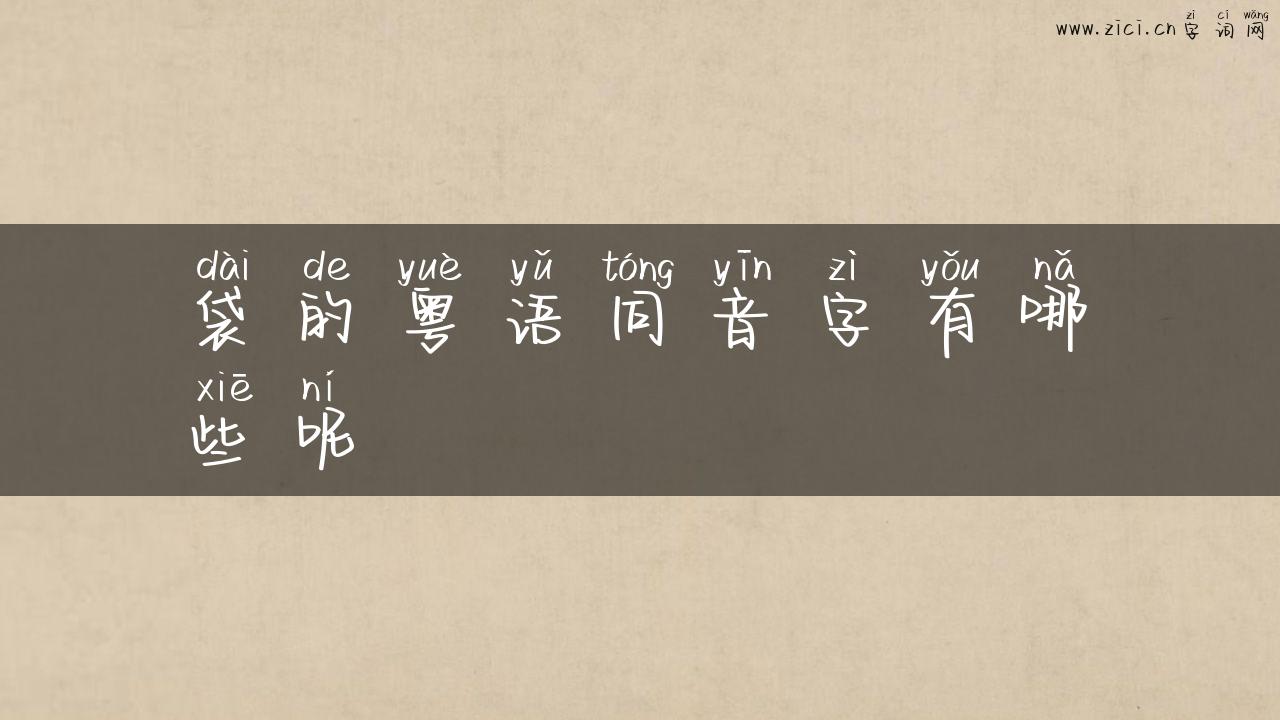 zì cí wǎng
www.zici.cn 字词网
dài de yuè yǔ tóng yīn zì yǒu nǎ
袋的粤语同音字有哪
xiē ní
些呢